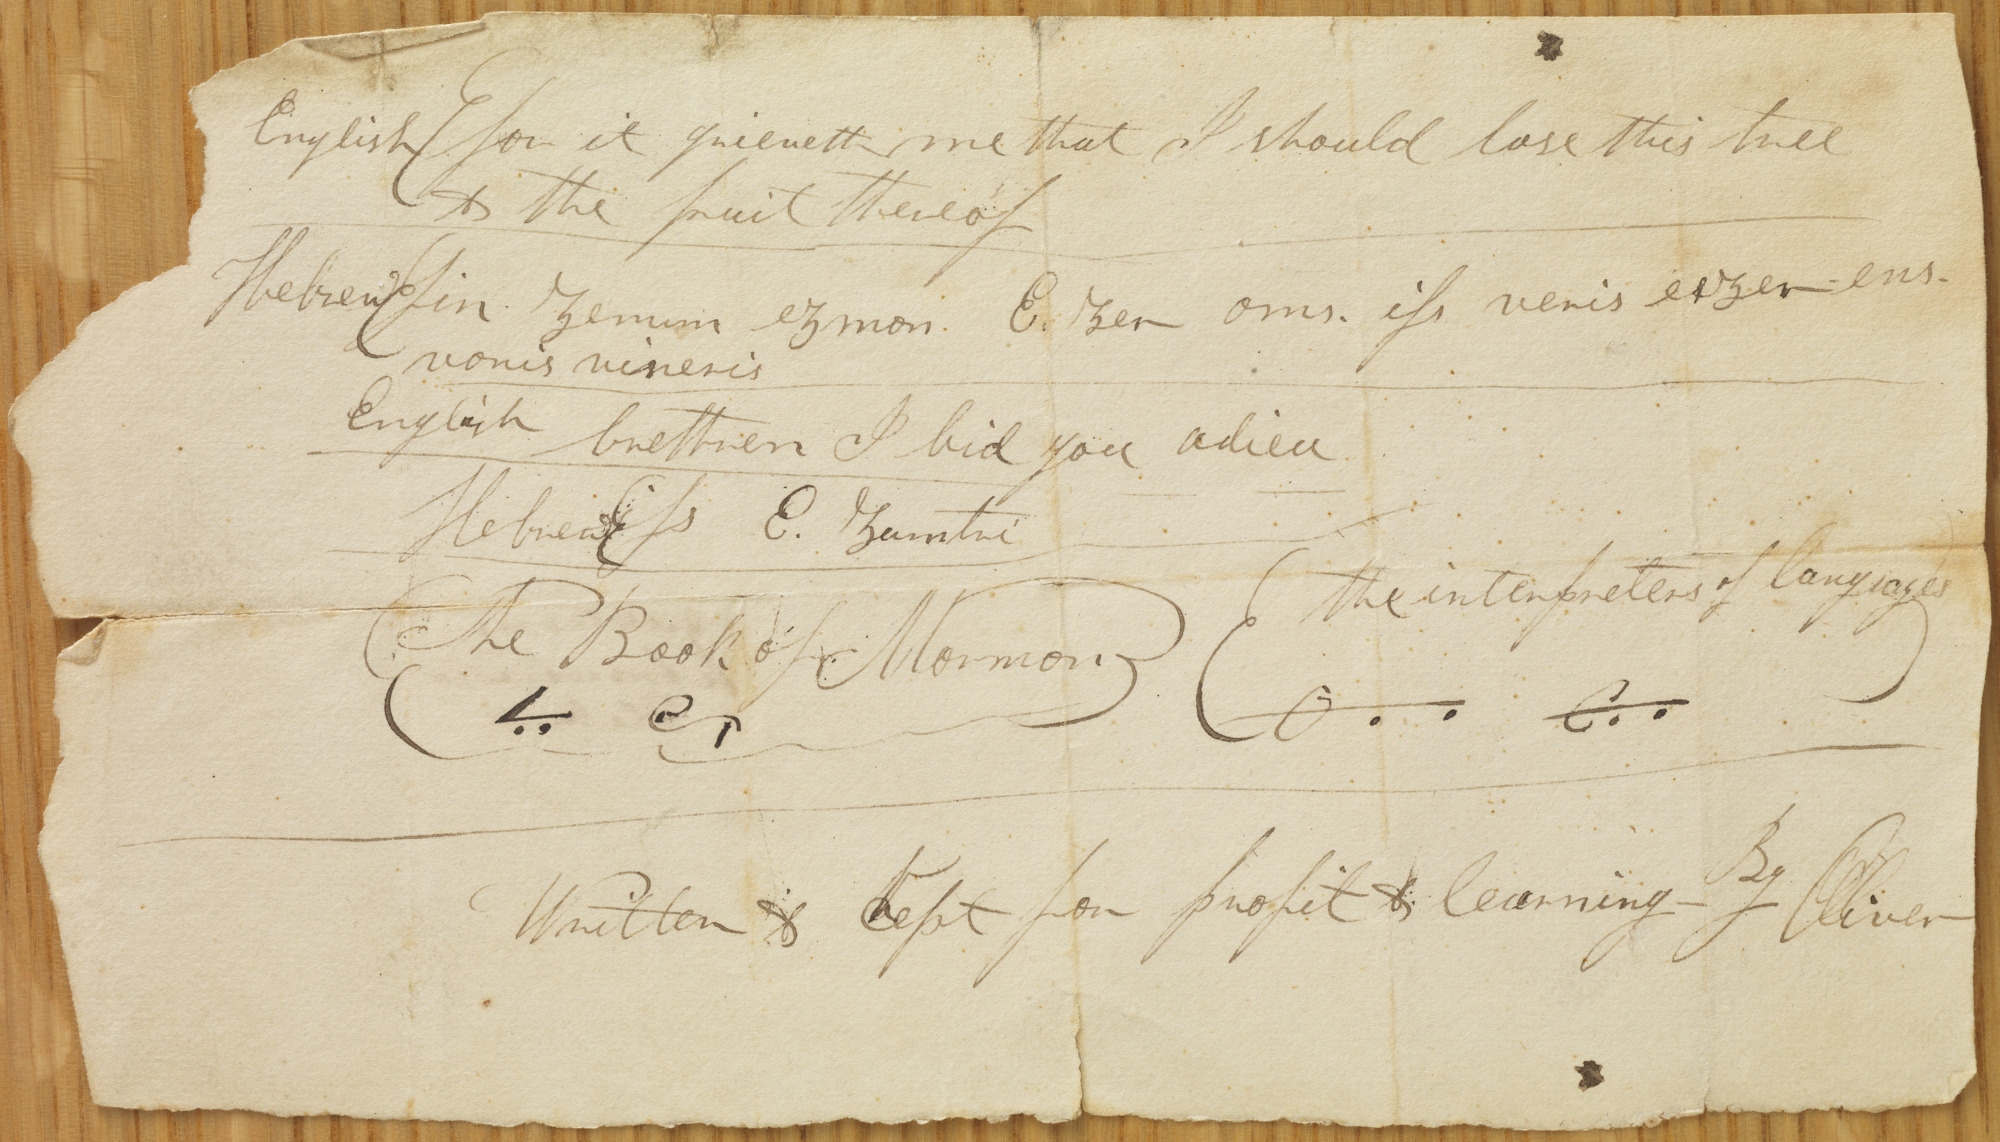 English { for it grieveth me that I should lose this tree
& the fruit thereof
Hebrew { fin Zemim ezmon E. Zer oms. ifs veris exzer-ens.
vonis vineris
English brethren I bid you adieu
Hebrew { ifs E. Zamtri
The Book of Mormon
the interpreters of languages
Written & kept for profit & learning - By Oliver